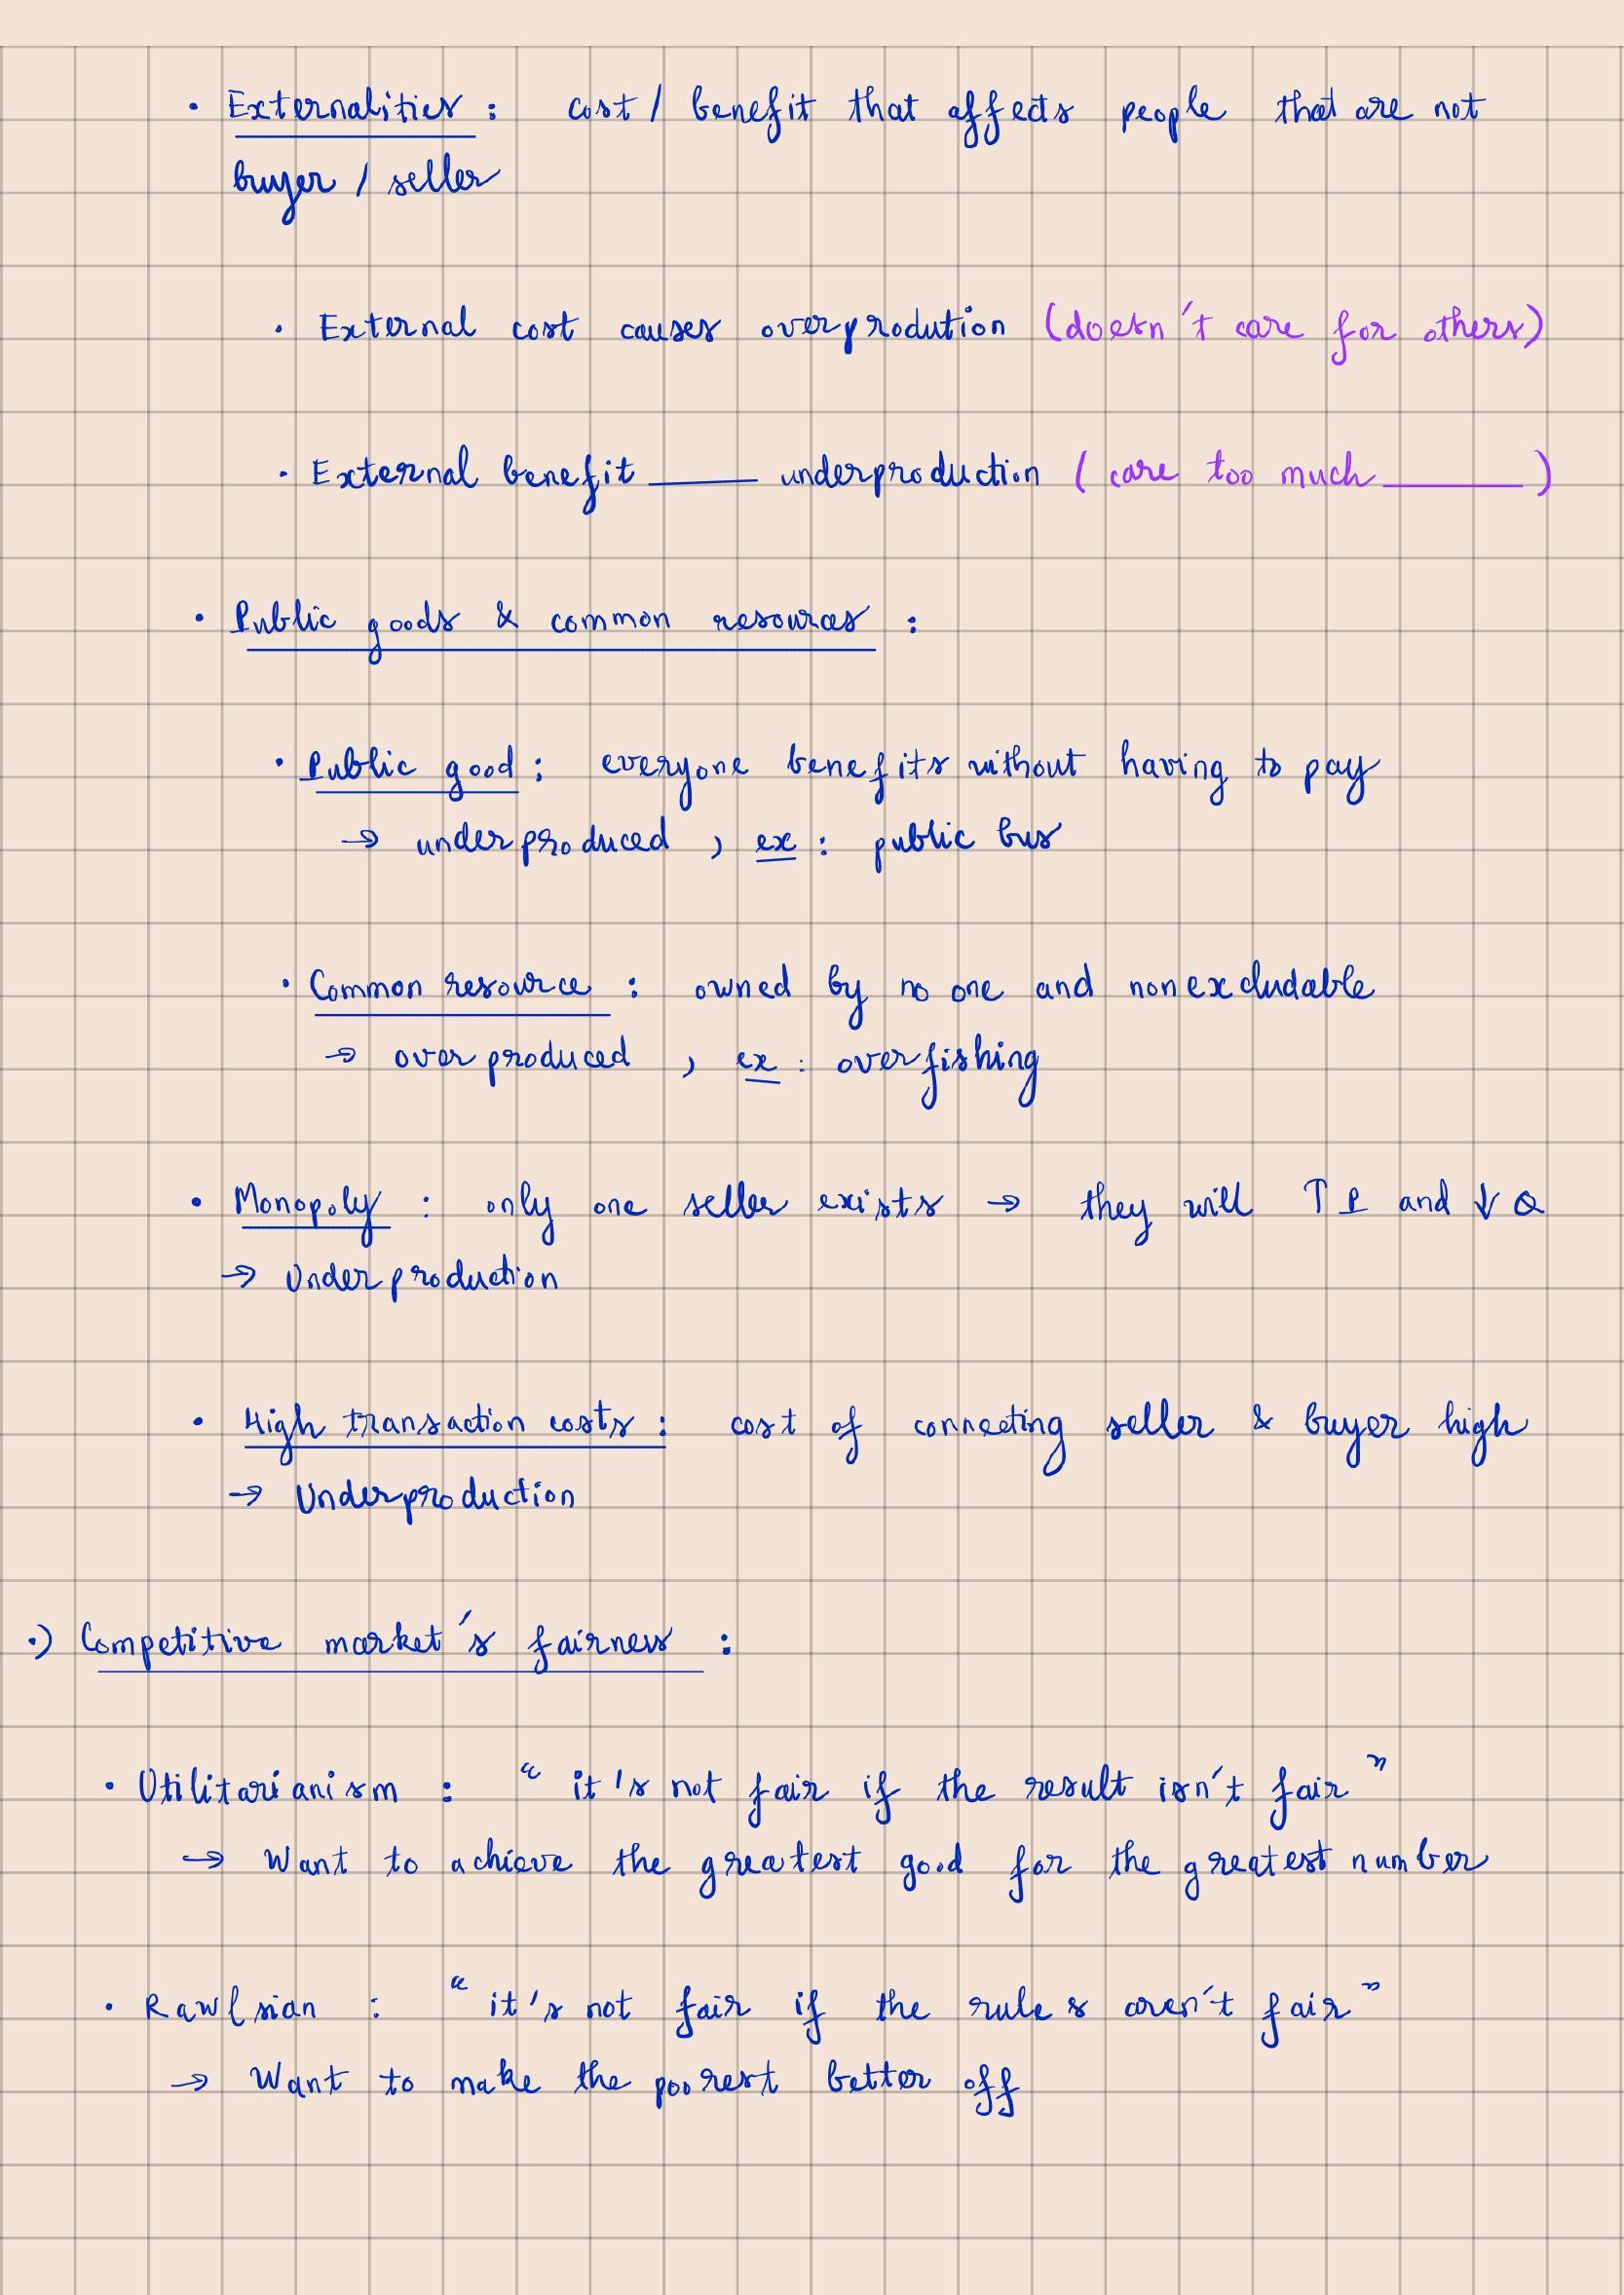 • Externalities : cost / benefit that affects people that are not
buyer / seller
• External cost causes overprodution (doesn't care for others)
• External benefit ______ underproduction ( care too much ______ )
• Public goods & common resources :
• Public good : everyone benefits without having to pay
→ underproduced , ex : public bus
• Common resource : owned by no one and nonexcludable
→ overproduced , ex : overfishing
• Monopoly : only one seller exists → they will ↑ P and ↓ Q
→ Underproduction
• High transaction costs : cost of connecting seller & buyer high
→ Underproduction
•) Competitive market's fairness :
• Utilitarianism : " it's not fair if the result isn't fair "
→ Want to achieve the greatest good for the greatest number
• Rawlsian : " it's not fair if the rules aren't fair "
→ Want to make the poorest better off